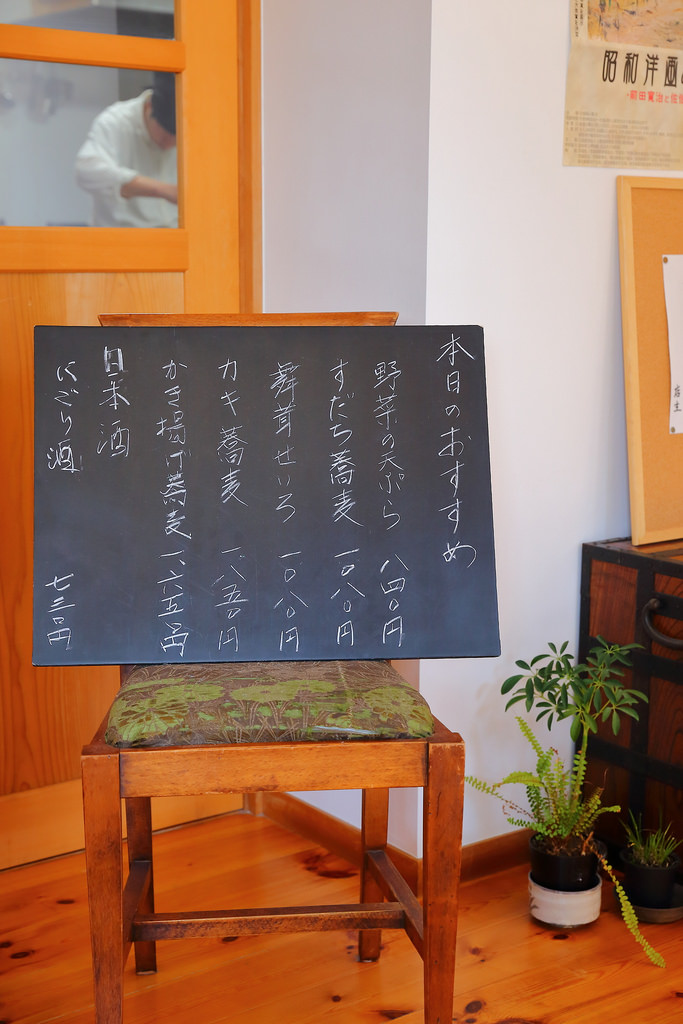 本日のおすすめ
野菜の天ぷら 八四〇円
すだち蕎麦 一〇八〇円
舞茸せいろ 一〇八〇円
カキ蕎麦 一八五〇円
かき揚げ蕎麦 一六五〇円
日本酒
にごり酒 七三〇円
昭和洋画
前田寛治と佐伯
店主